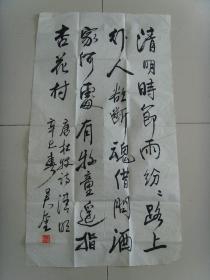 清明時節雨紛〻路上
行人欲斷魂借問酒
家何處有牧童遥指
杏花村
唐杜牧詩清明
辛巳春